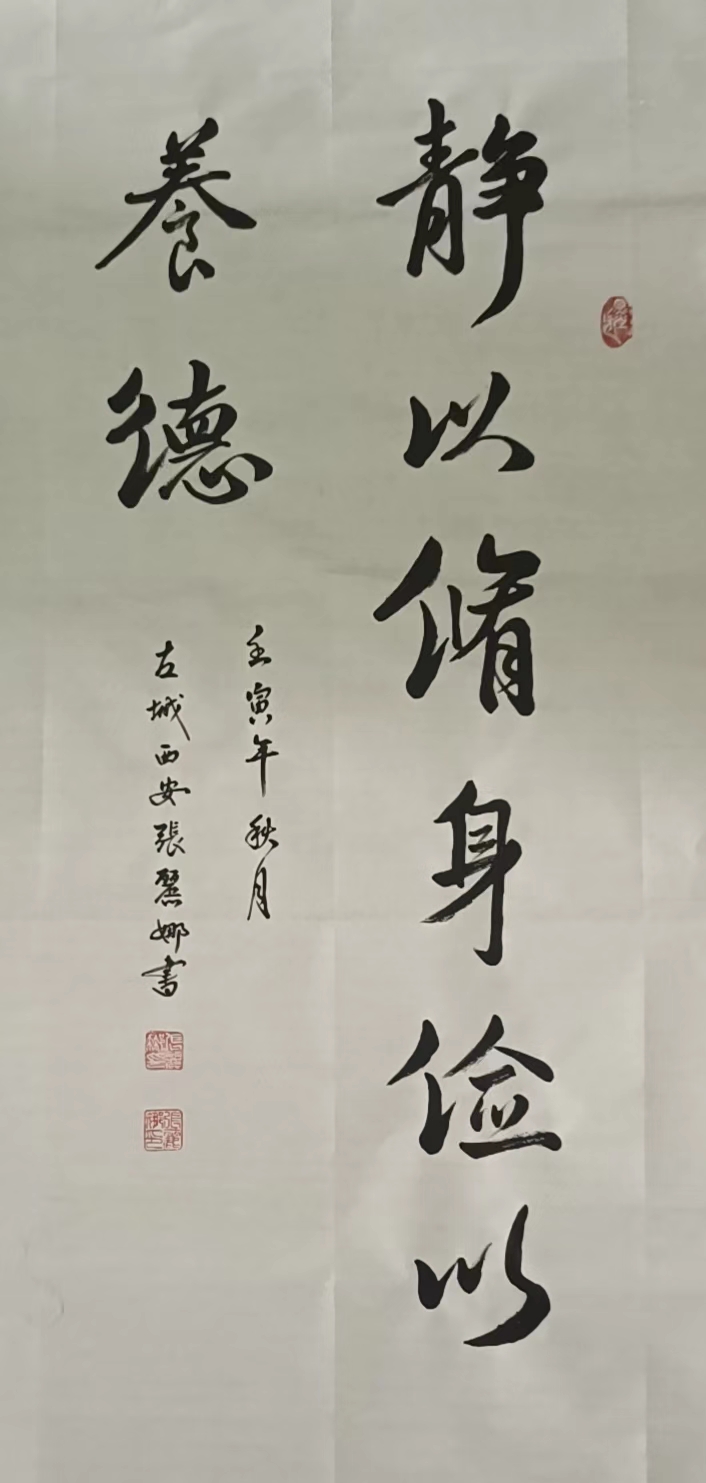 静以脩身俭以
養德
壬寅年秋月
古城西安張麗娜書